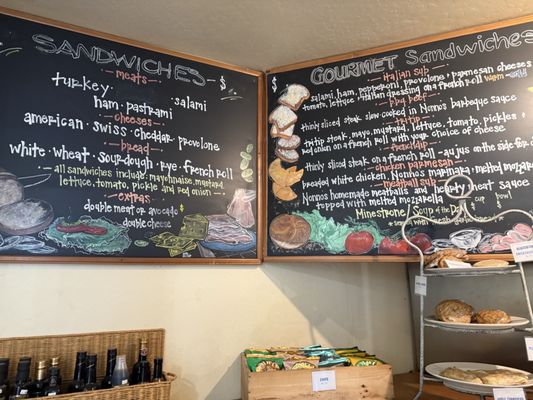 SANDWICHES $
meats
turkey · salami
ham · pastrami
cheeses
american · swiss · cheddar · provolone
bread
white · wheat · sourdough · rye · french roll
all sandwiches include: mayonnaise, mustard,
lettuce, tomato, pickle and red onion
extras
double meat or avocado
double cheese
$ GOURMET Sandwiches
italian sub
salami, ham, pepperoni, provolone & parmesan cheeses
tomato, lettuce & italian dressing on a french roll
bbq beef
thinly sliced steak slow cooked in Nonno's barbecue sauce
tri tip
tritip steak, mayo, mustard, lettuce, tomato, pickles &
red onion on a french roll with your choice of cheese
french dip
thinly sliced steak on a french roll - au jus on the side for
chicken parmesan
breaded white chicken, Nonno's marinara, melted mozzarella
meatball sub
Nonno's homemade meatballs & hearty meat sauce
topped with melted mozzarella
Minestrone Soup of the Day
cup bowl